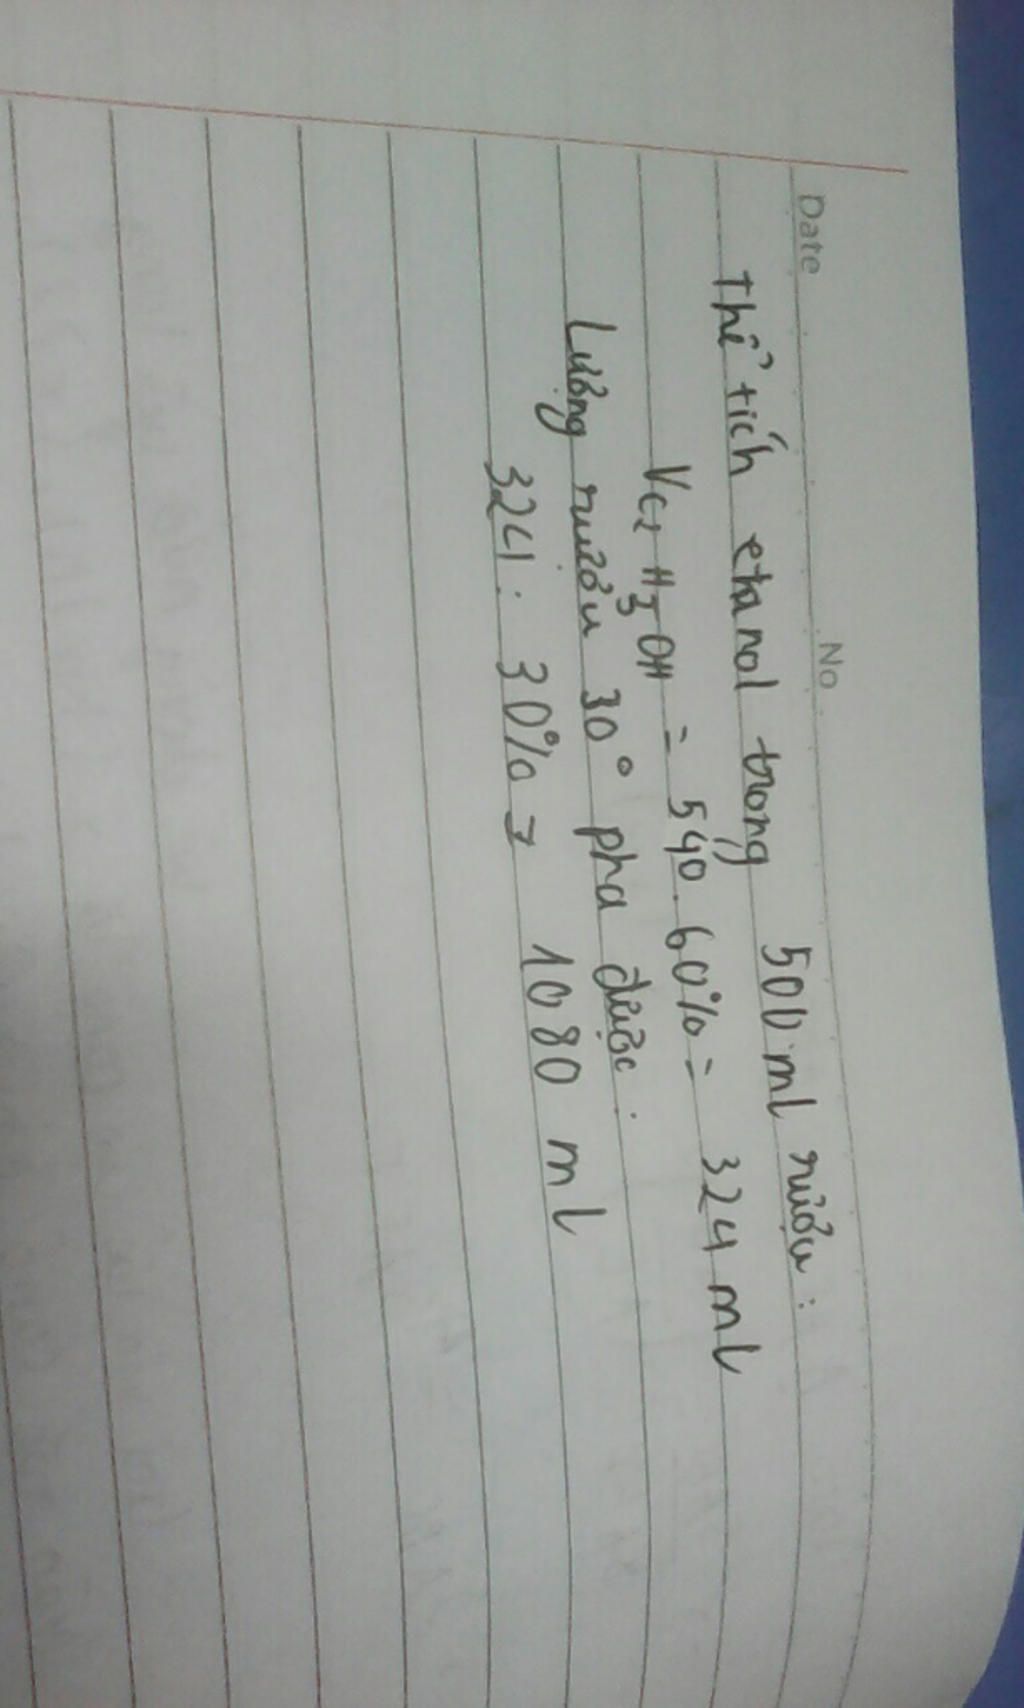 Date No
Thể tích etanol trong 500 ml rượu :
VC2H5OH = 540.60% = 324 ml
Lượng rượu 30° pha được :
324 : 30% = 1080 ml